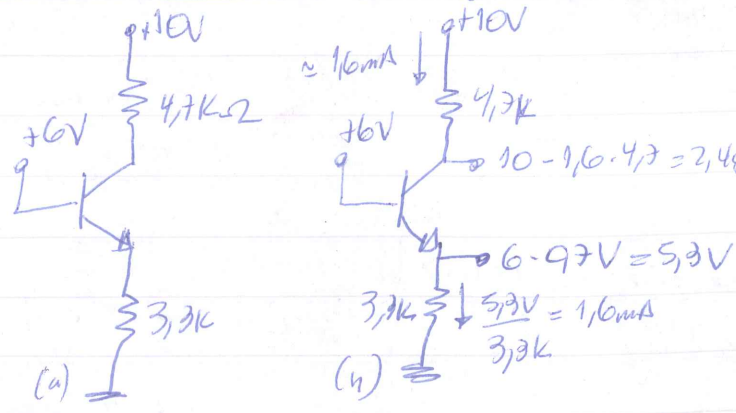 +10V
4,7KΩ
+6V
3,3K
(a)
+10V
≈ 1,6mA
4,7K
+6V
10 - 1,6 . 4,7 = 2,4
6 - 0,7V = 5,3V
3,3K
5,3V
3,3K
= 1,6mA